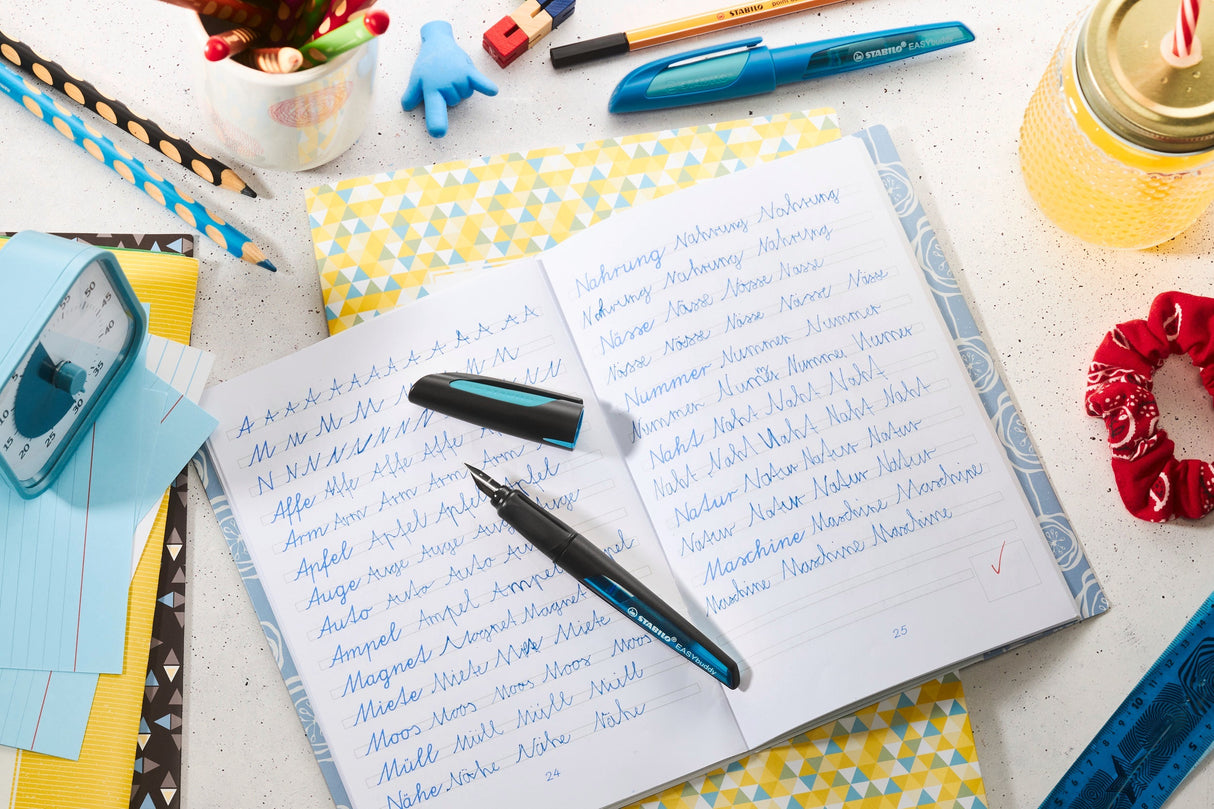 STABILO point
STABILO EASYbuddy
55 50 45 40 35 30 25 20 15 10 5
A A A A A A A A A A A
M M M M M M
N N N N N N N
Affe Affe Affe Affe
Arm Arm Arm Arm
Apfel Apfel Apfel
Auge Auge Auge
Auto Auto Auto
Ampel Ampel Ampel
Magnet Magnet Magnet
Miete Miete Miete Miete
Moos Moos Moos Moos Moos
Müll Müll Müll Müll
Nähe Nähe Nähe Nähe
24
STABILO EASYbuddy
Nahrung Nahrung Nahrung
Nahrung Nahrung Nahrung
Nässe Nässe Nässe Nässe
Nässe Nässe Nässe Nässe Nässe
Nummer Nummer Nummer
Nummer Nummer Nummer Nummer
Naht Naht Naht Naht
Naht Naht Naht Naht Naht
Natur Natur Natur Natur
Natur Natur Natur Natur
Maschine Maschine Maschine
Maschine Maschine Maschine
25
7 8 9 10 11 12 13 14